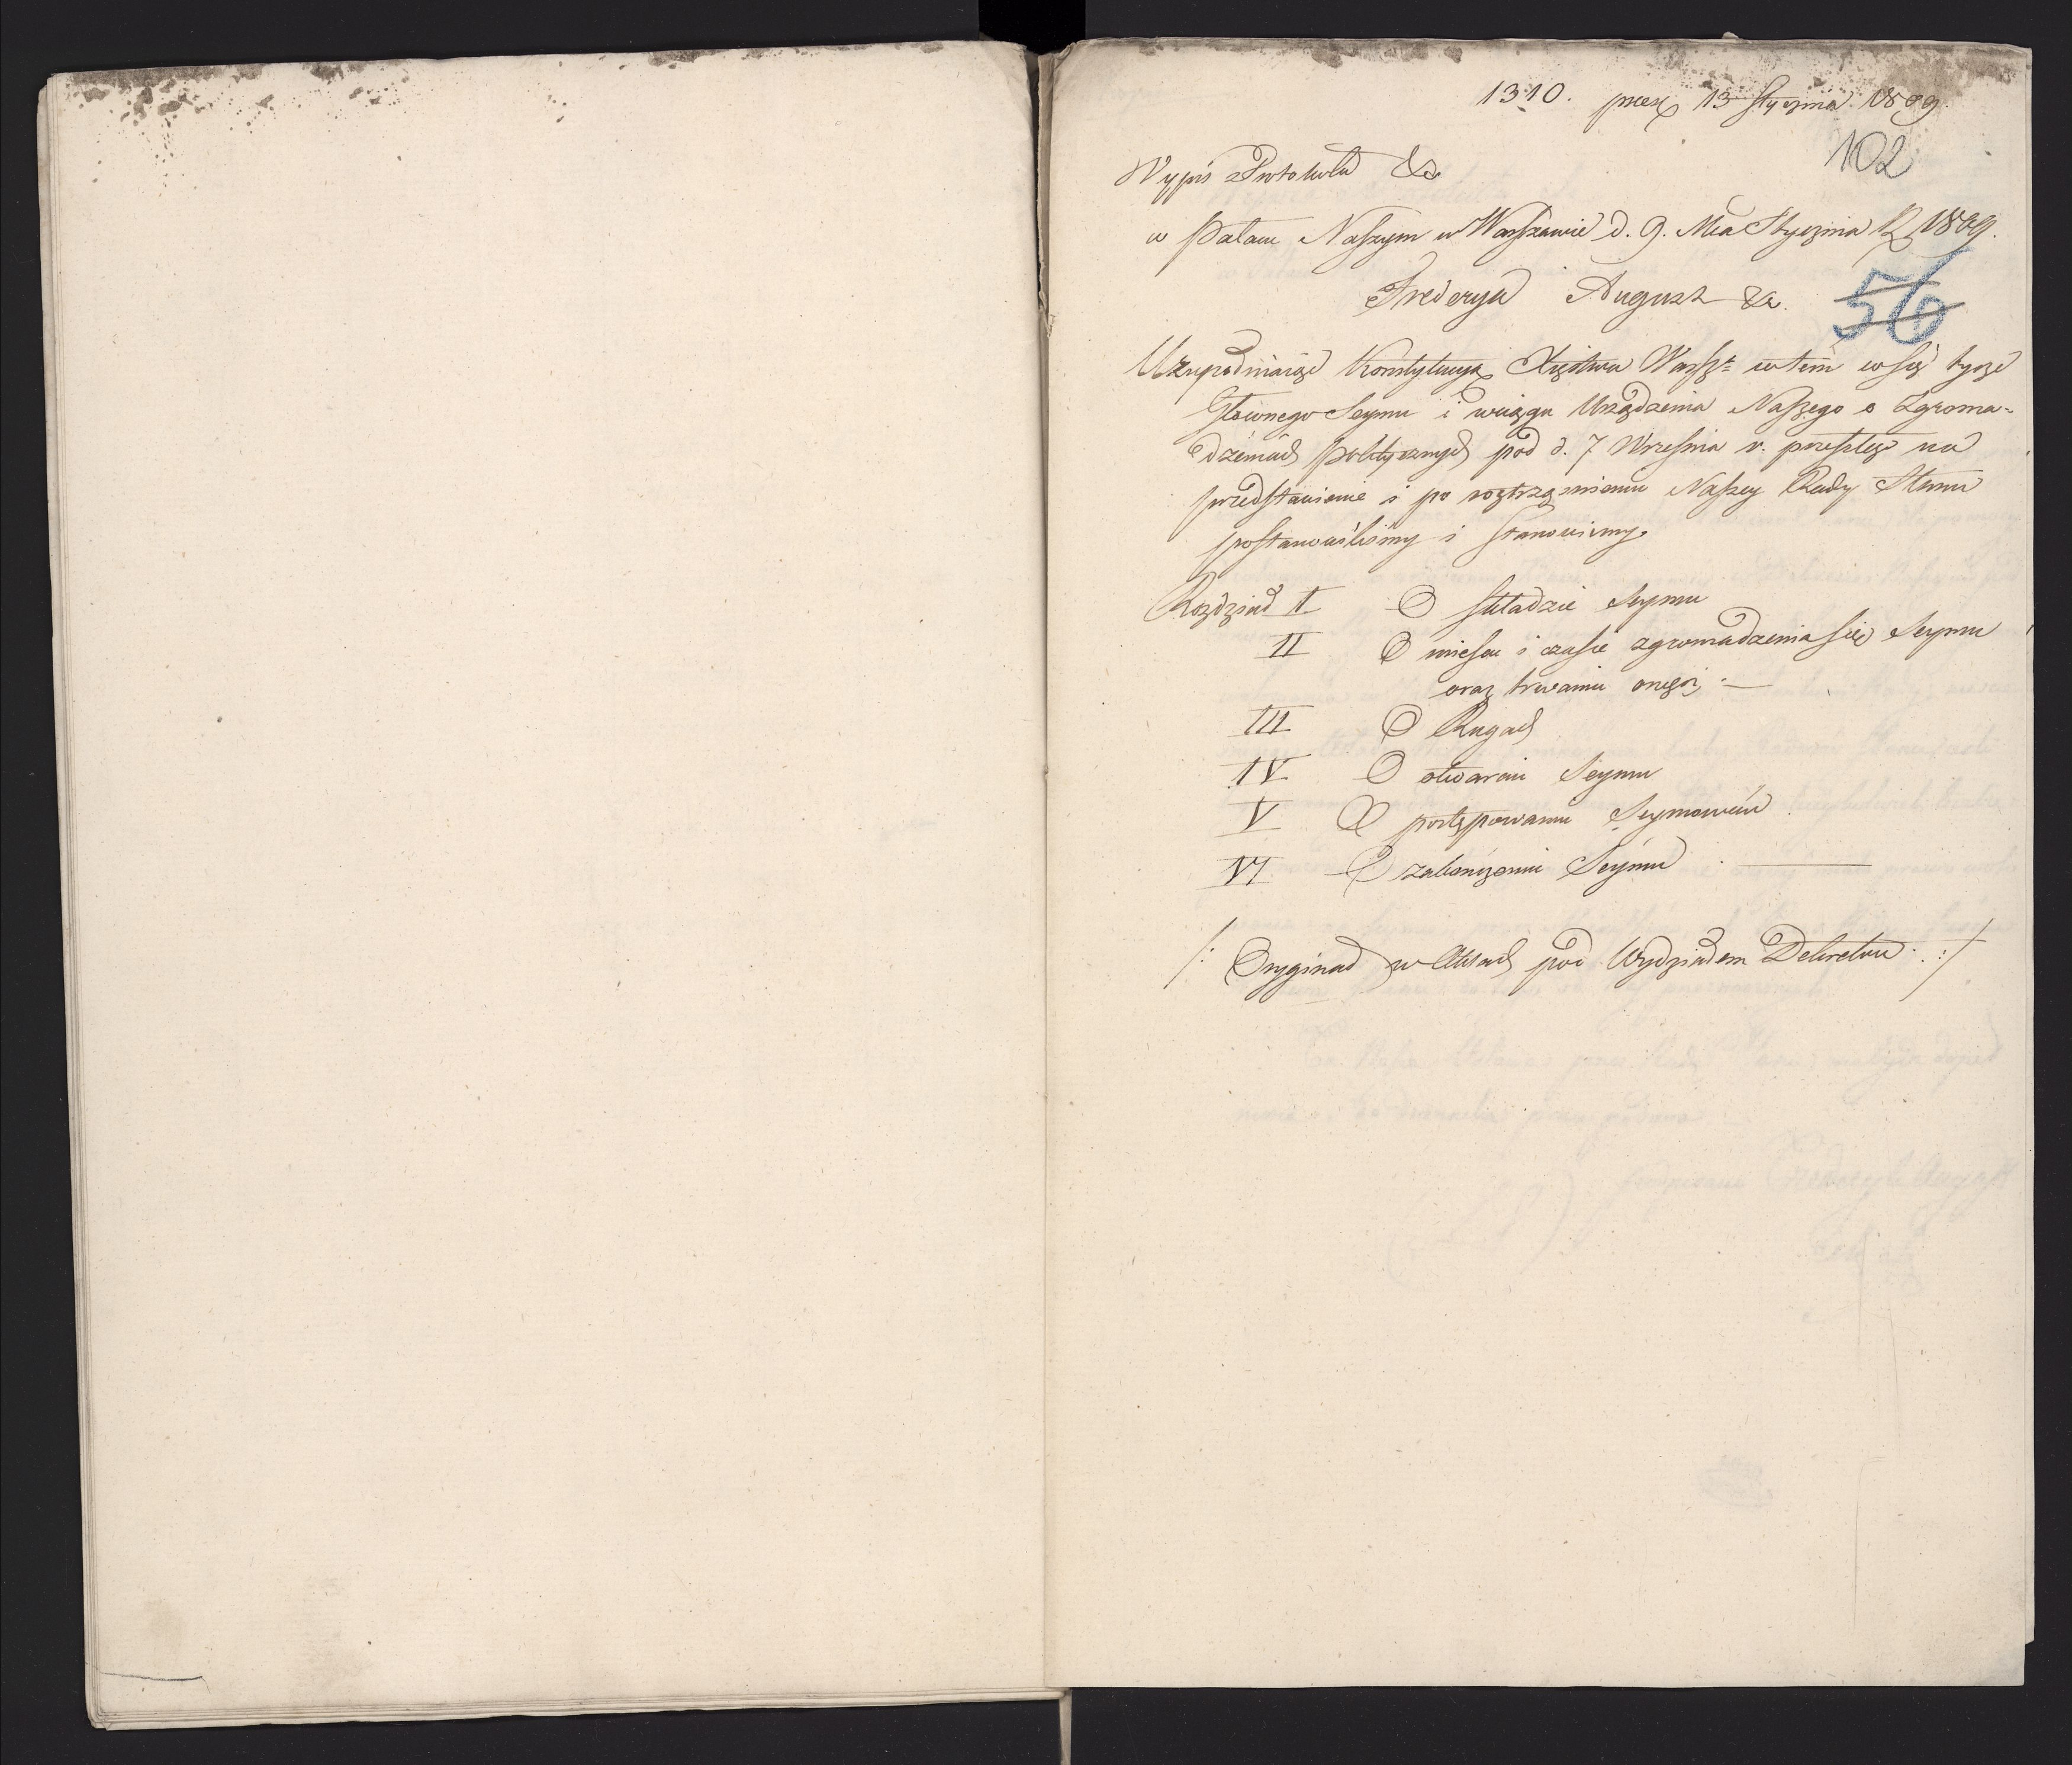 1310. præs 13 Stycznia 1809.
102
Wypis z Protokułu &a
w Pałacu Naszym w Warszawie d. 9. Mca Stycznia R. 1809.
Fryderyk August &a.
56
Uzupełniaiąc Konstytucyą Xięstwa Warszo w tem co się tycze
Głównego Seymu i w ciągu Urządzenia Naszego o Zgroma-
dzeniach politycznych pod d. 7 Września r. przeszłego na
przedstawienie i po roztrząśnieniu Naszey Rady Stanu
postanowiliśmy i stanowimy.
Rozdział I O składzie Seymu
II O mieyscu i czasie zgromadzenia się Seymu
oraz trwaniu onegoż. —
III O Rugach
IV O otwarciu Seymu
V O postępowaniu Seymowém
VI O zakończeniu Seymu. —
/: Oryginał w Aktach pod Wydziałem Dekretów. :/